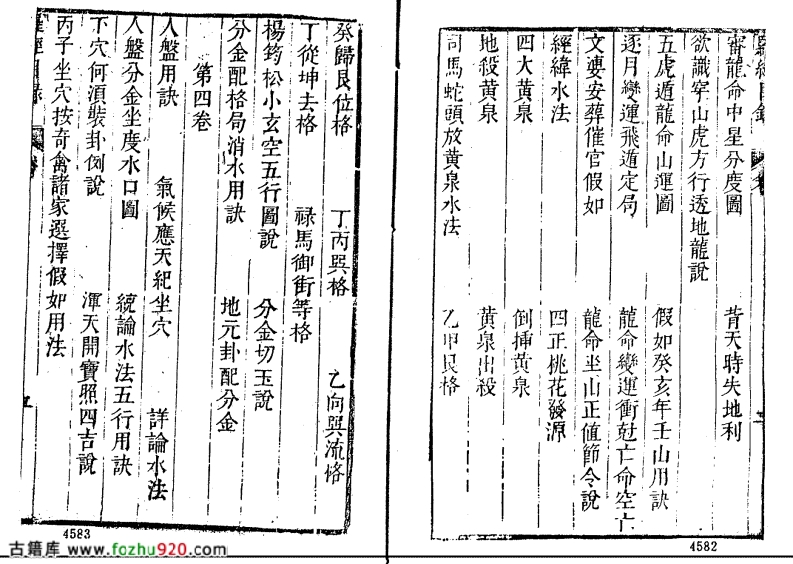 羅經目錄
審龍命中星分度圖　昔天時失地利
欲識穿山虎方行透地龍說
五虎遁龍命山運圖　假如癸亥年壬山用訣
逐月變運飛遁定局　龍命變運衝尅亡命空亡
文婁安葬催官假如　龍命坐山正值節令說
經緯水法　四正桃花發源
四大黃泉　倒插黃泉
地殺黃泉　黃泉出殺
司馬蛇頭放黃泉水法　乙甲艮格
4582
癸歸艮位格　丁丙巽格　乙向巽流格
丁從坤去格　祿馬御街等格
楊筠松小玄空五行圖說　分金切玉說
分金配格局消水用訣　地元卦配分金
第四卷
人盤用訣　氣候應天紀坐穴　詳論水法
人盤分金坐度水口圖　統論水法五行用訣
下穴何須裝卦例說　渾天開寶照四吉說
丙子坐穴按奇禽諸家選擇假如用法
羅經目錄
五
4583
古籍库 www.fozhu920.com